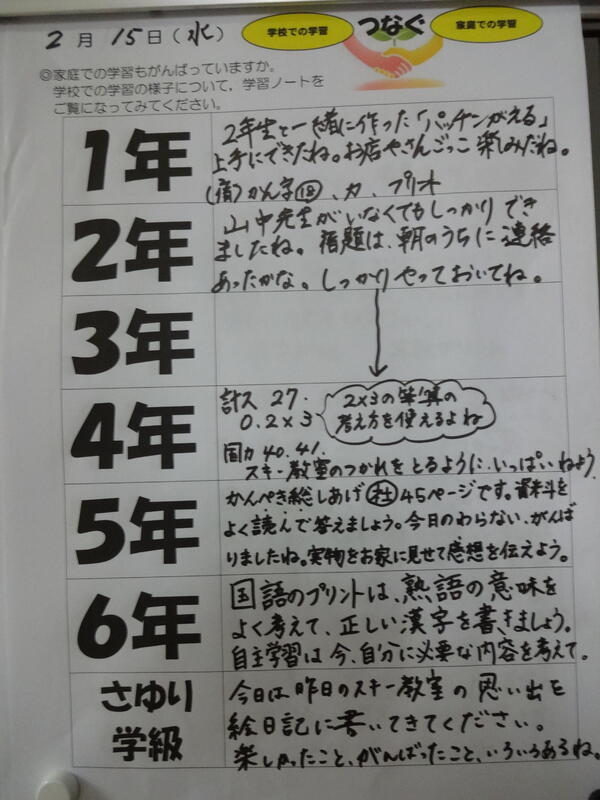 2月15日(水)
学校での学習
つなぐ
家庭での学習
◎家庭での学習もがんばっていますか。
学校での学習の様子について，学習ノートを
ご覧になってみてください。
1年
2年生と一緒に作った「パッチンがえる」
上手にできたね。お店やさんごっこ楽しみだね。
(宿)かん字⑱、カ、プリント
2年
山中先生がいなくてもしっかりでき
ましたね。宿題は、朝のうちに連絡
あったかな。しっかりやっておいてね。
3年
4年
計ス 27.
0.2×3
2×3の筆算の
考え方を使えるよね
国カ 40.41.
スキー教室のつかれをとるように、いっぱいねよう
5年
かんぺき総しあげ(社)45ページです。資料を
よく読んで答えましょう。今日のわらない、がんば
りましたね。実物をお家に見せて感想を伝えよう。
6年
国語のプリントは、熟語の意味を
よく考えて、正しい漢字を書きましょう。
自主学習は今、自分に必要な内容を考えて。
さゆり
学級
今日は昨日のスキー教室の思い出を
絵日記に書いてきてください。
楽しかったこと、がんばったこと、いろいろあるね。